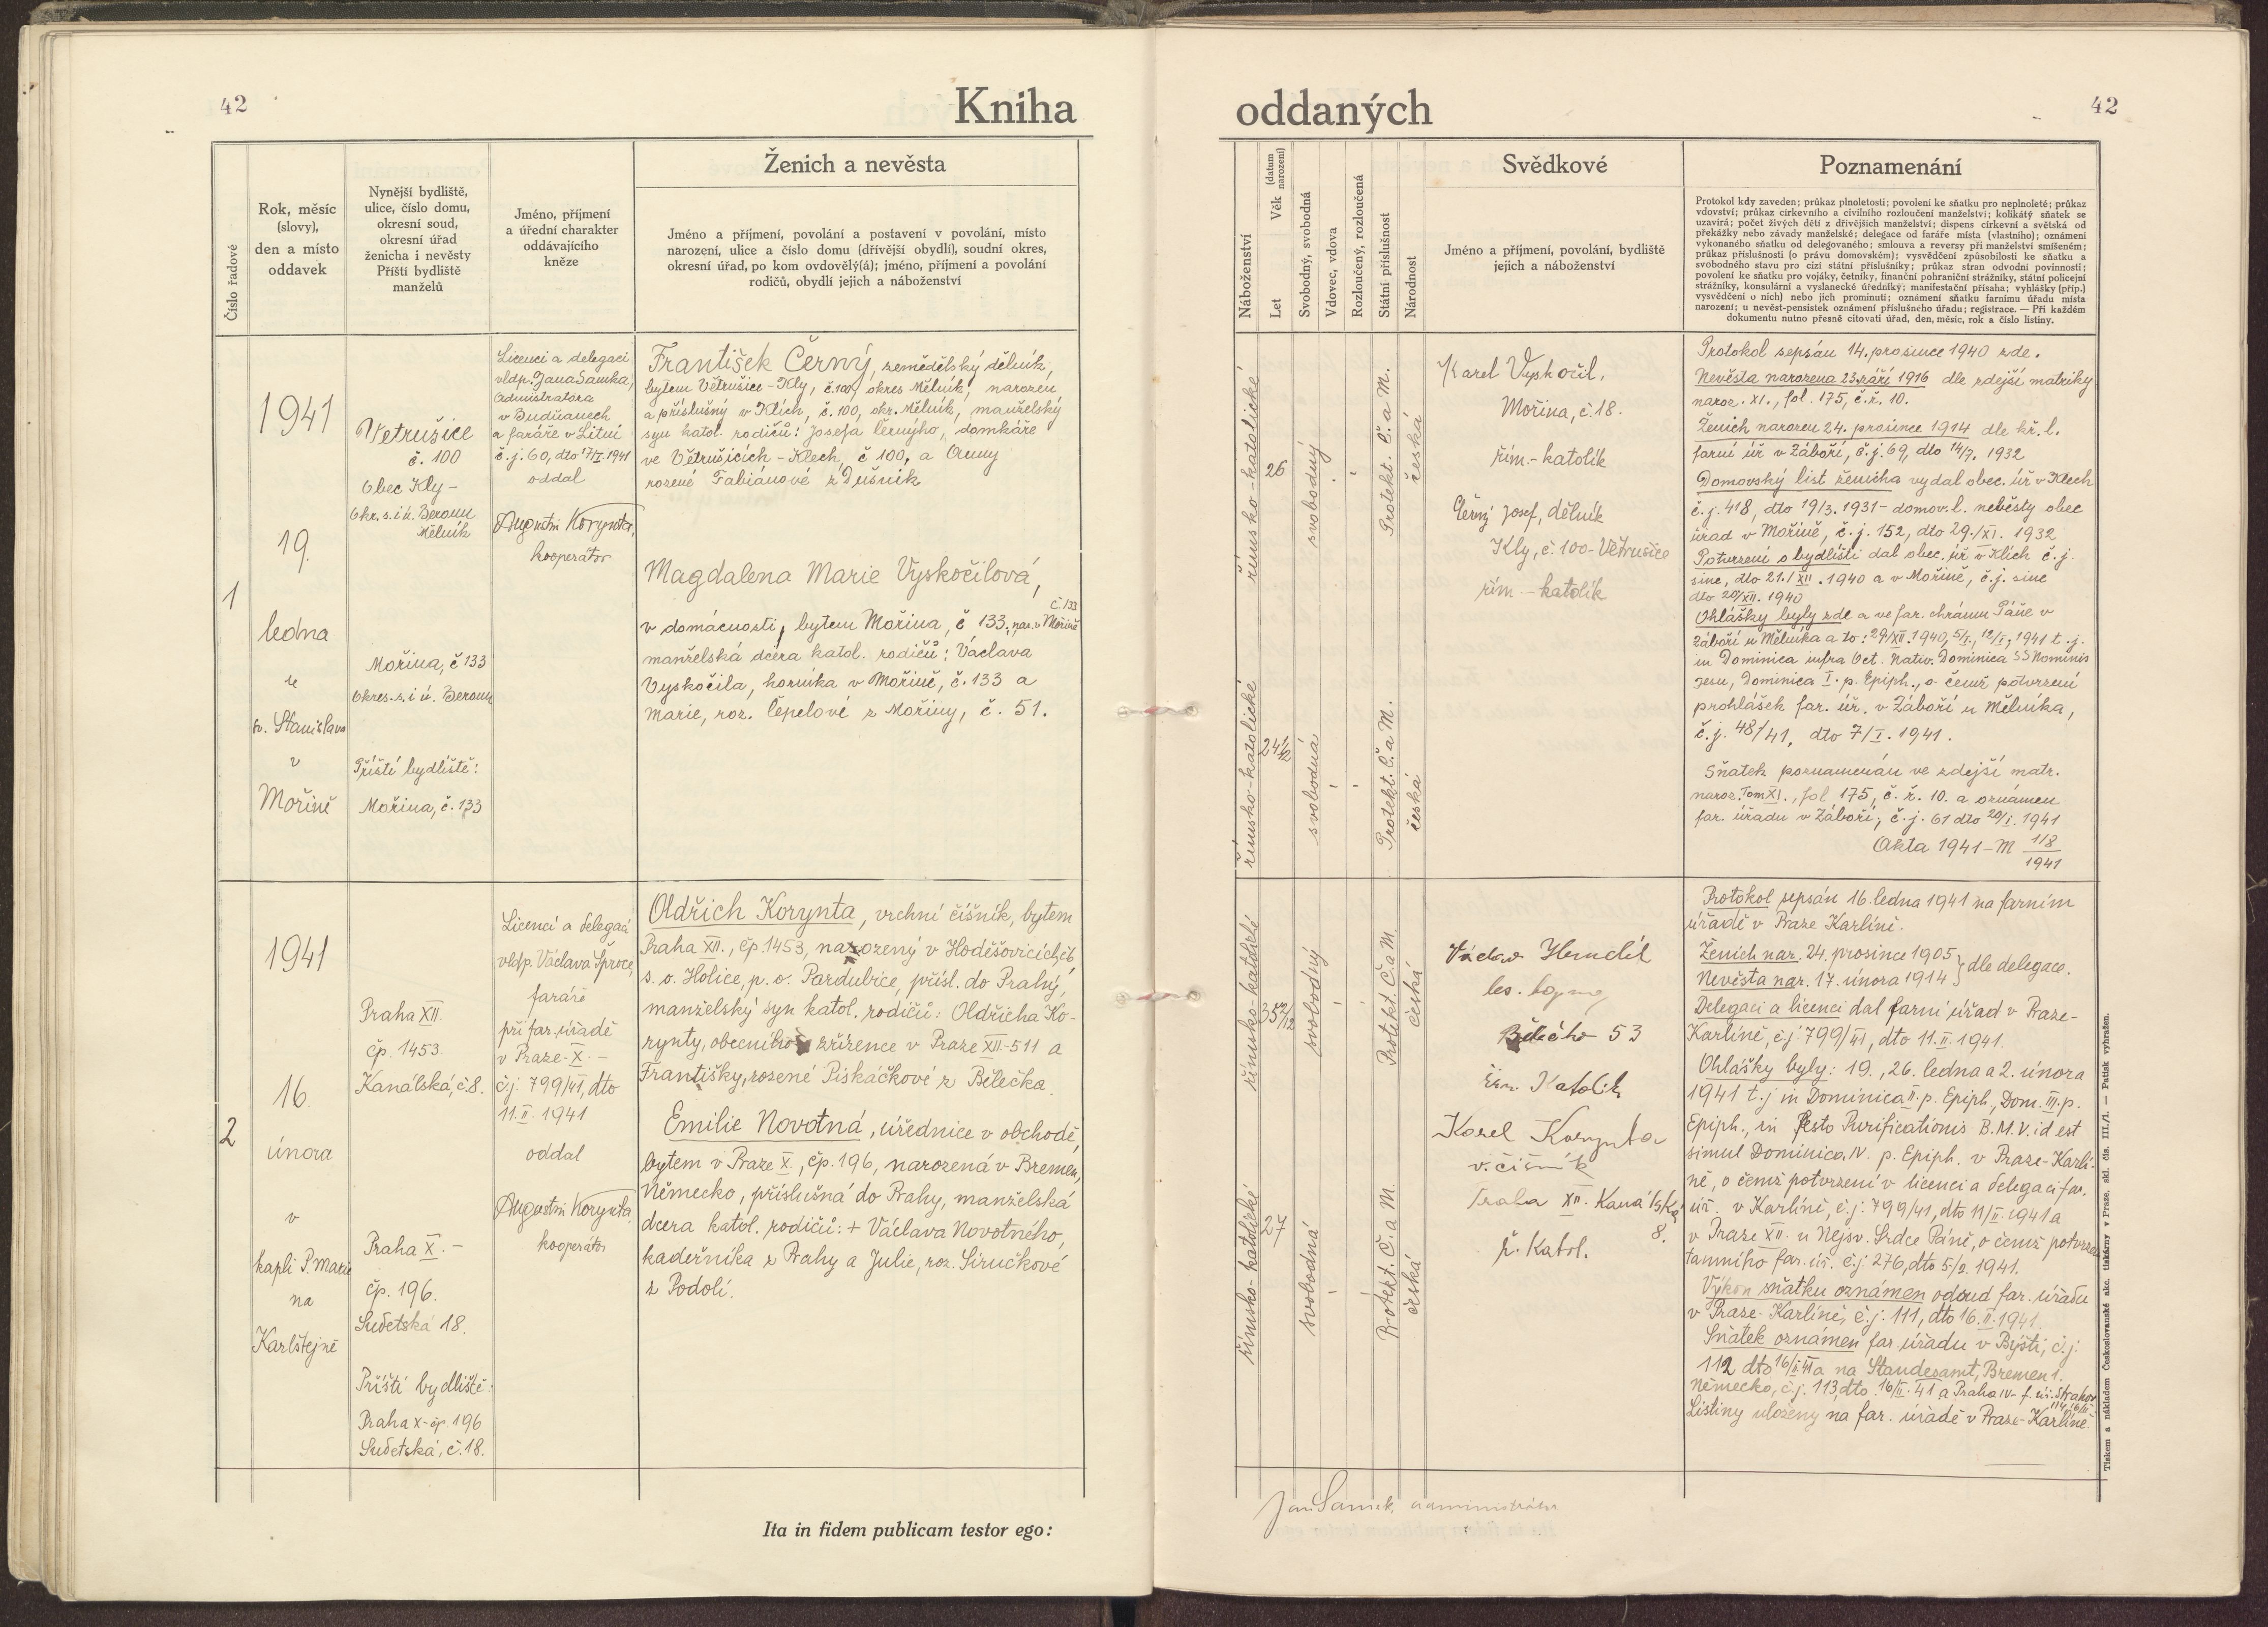 42
Kniha
Číslo řadové
Rok, měsíc
(slovy),
den a místo
oddavek
Nynější bydliště,
ulice, číslo domu,
okresní soud,
okresní úřad
ženicha i nevěsty
Příští bydliště
manželů
Jméno, příjmení
a úřední charakter
oddávajícího
kněze
Ženich a nevěsta
Jméno a příjmení, povolání a postavení v povolání, místo
narození, ulice a číslo domu (dřívější obydlí), soudní okres,
okresní úřad, po kom ovdověl(á); jméno, příjmení a povolání
rodičů, obydlí jejich a náboženství
1
1941
19.
ledna
u
sv. Stanislava
v
Mořině
Vetrušice
č. 100
Obec Kly-
Okr. s. i ú. Beroun
Mělník
Mořina, č 133
Okres. s. i ú. Beroun
Příští bydliště:
Mořina, č. 133
Licencí a delegací
vldp. Jana Samka,
administrátora
v Budňanech
a faráře v Litni
č. j. 60, dto 17/I. 1941
oddal
Augustin Korynta,
kooperátor
František Černý, zemědělský dělník,
bytem Větrušice-Kly, č. 100, okres Mělník, narozen
a příslušný v Klích, č. 100, okr. Mělník, manželský
syn katol. rodičů: Josefa Černýho, domkáře
ve Větrušicích-Klech, č 100, a Anny
rozené Fabiánové z Dušník
Magdalena Marie Vyskočilová,
č. 133
v domácnosti, bytem Mořina, č 133, nar. v Mořině
manželská dcera katol. rodičů: Václava
Vyskočila, horníka v Mořině, č. 133 a
Marie, roz. Čepelové z Mořiny, č. 51.
2
1941
16.
února
v
kapli P. Marie
na
Karlštejně
Praha XII.
čp. 1453.
Kanálská, č. 8.
Praha X.-
čp. 196.
Sudetská 18.
Příští bydliště:
Praha X-čp. 196
Sudetská, č. 18.
Licencí a delegací
vldp. Václava Šproce,
faráře
při far. úřadě
v Praze-X.-
č. j. 799/41, dto
11. II. 1941
oddal
Augustin Korynta,
kooperátor
Oldřich Korynta, vrchní číšník, bytem
Praha XII., čp. 1453, narozený v Hoděšovicích, č. 6
s. o. Holice, p. o. Pardubice, přísl. do Prahy,
manželský syn katol. rodičů: Oldřicha Ko-
rynty, obecního zřízence v Praze XII-511 a
Františky, rozené Piskáčkové z Bělečka.
Emilie Novotná, úřednice v obchodě,
bytem v Praze X., čp. 196, narozená v Bremen,
Německo, příslušná do Prahy, manželská
dcera katol. rodičů: + Václava Novotného,
kadeřníka z Prahy a Julie, roz. Siručkové
z Podolí.
Ita in fidem publicam testor ego:
oddaných
42
Náboženství
Let
Věk (datum narození)
Svobodný, svobodná
Vdovec, vdova
Rozloučený, rozloučená
Státní příslušnost
Národnost
Svědkové
Jméno a příjmení, povolání, bydliště
jejich a náboženství
Poznamenání
Protokol kdy zaveden; průkaz plnoletosti; povolení ke sňatku pro neplnoleté; průkaz
vdovství; průkaz církevního a civilního rozloučení manželství; kolikátý sňatek se
uzavírá; počet živých dětí z dřívějších manželství; dispens církevní a světská od
překážky nebo závady manželské; delegace od faráře místa (vlastního); oznámení
vykonaného sňatku od delegovaného; smlouva a reversy při manželství smíšeném;
průkaz příslušnosti (o právu domovském); vysvědčení způsobilosti ke sňatku a
svobodného stavu pro cizí státní příslušníky; průkaz stran odvodní povinnosti;
povolení ke sňatku pro vojáky, četníky, finanční pohraniční strážníky, státní policejní
strážníky, konsulární a vyslanecké úředníky; manifestační přísaha; vyhlášky (příp.)
vysvědčení o nich) nebo jich prominutí; oznámení sňatku farnímu úřadu místa
narození; u nevěst-pensistek oznámení příslušného úřadu; registrace. — Při každém
dokumentu nutno přesně citovati úřad, den, měsíc, rok a číslo listiny.
římsko-katolické
26
svobodný
Protekt. Č. a M.
česká
římsko-katolické
24 1/12
svobodná
Protekt. Č. a M.
česká
Karel Vyskočil,
Mořina, č. 18.
řím.-katolík
Černý Josef, dělník
Kly, č. 100-Větrušice
řím.-katolík
Protokol sepsán 14. prosince 1940 zde.
Nevěsta narozena 23. září 1916 dle zdejší matriky
naroz. XI., fol. 175, č. ř. 10.
Ženich narozen 24. prosince 1914 dle kř. l.
farní úř v Záboří, č. j. 69, dto 14/7. 1932
Domovský list ženicha vydal obec. úř v Klech
č. j. 418, dto 19/3. 1931- domov. l. nevěsty obec
úřad v Mořině, č. j. 152, dto 29./XI. 1932
Potvrzení o bydlišti dal obec. úř v Klích č. j.
sine, dto 21./XII. 1940 a v Mořině, č. j. sine
dto 20/XII. 1940
Ohlášky byly zde a ve far. chrámu Páně v
Záboří u Mělníka a to: 29/XII. 1940, 5/I., 12/I., 1941 t. j.
in Dominica infra Oct. Nativ. Dominica SS Nominis
Jesu, Dominica I. p. Epiph., o čemž potvrzení
prohlášek far. úř. v Záboří u Mělníka,
č. j. 48/41, dto 7/I. 1941.
Sňatek poznamenán ve zdejší matr.
naroz. Tom XI., fol. 175, č. ř. 10. a oznámen
far. úřadu v Záboří, č. j. 61 dto 20/I. 1941
Akta 1941-M 118/1941
římsko-katolické
35 2/12
svobodný
Protekt. Č. a M.
česká
římsko-katolické
27
svobodná
Protekt. Č. a M.
česká
Václav
53
řím. Katolík
Karel Korynta
v. číšník
Praha XII. Kanálská
8.
ř. Katol.
Protokol sepsán 16. ledna 1941 na farním
úřadě v Praze Karlíně.
Ženich nar. 24. prosince 1905
Nevěsta nar. 17. února 1914 } dle delegace.
Delegaci a licenci dal farní úřad v Praze-
Karlíně, č. j. 799/41, dto 11. II. 1941.
Ohlášky byly: 19., 26. ledna a 2. února
1941 t. j in Dominica II. p. Epiph., Dom. III. p.
Epiph., in Festo Purificationis B. M. V. id est
simul Dominica IV. p. Epiph. v Praze-Karlí-
ně, o čemž potvrzení v licenci a delegaci far.
úř. v Karlíně, č. j. 799/41, dto 11/II. 1941 a
v Praze XII. u Nejsv. Srdce Páně, o čemž potvrzen
tamního far. úř. č. j. 276, dto 5/2. 1941.
Výkon sňatku oznámen odsud far. úřadu
v Praze-Karlíně, č. j. 111, dto 16. II. 1941.
Sňatek oznámen far. úřadu v Býšti, č. j.
112 dto 16/II. 41 a na Standesamt, Bremen 1.
Německo, č. j. 113, dto 16/II. 41 a Praha IV- f. úř. Strahov
114, 16/II.
Listiny uloženy na far. úřadě v Praze-Karlíně.
Jan Samek, administrátor
Tiskem a nákladem Československé akc. tiskárny v Praze, skl. čís. III./1. — Patisk vyhražen.